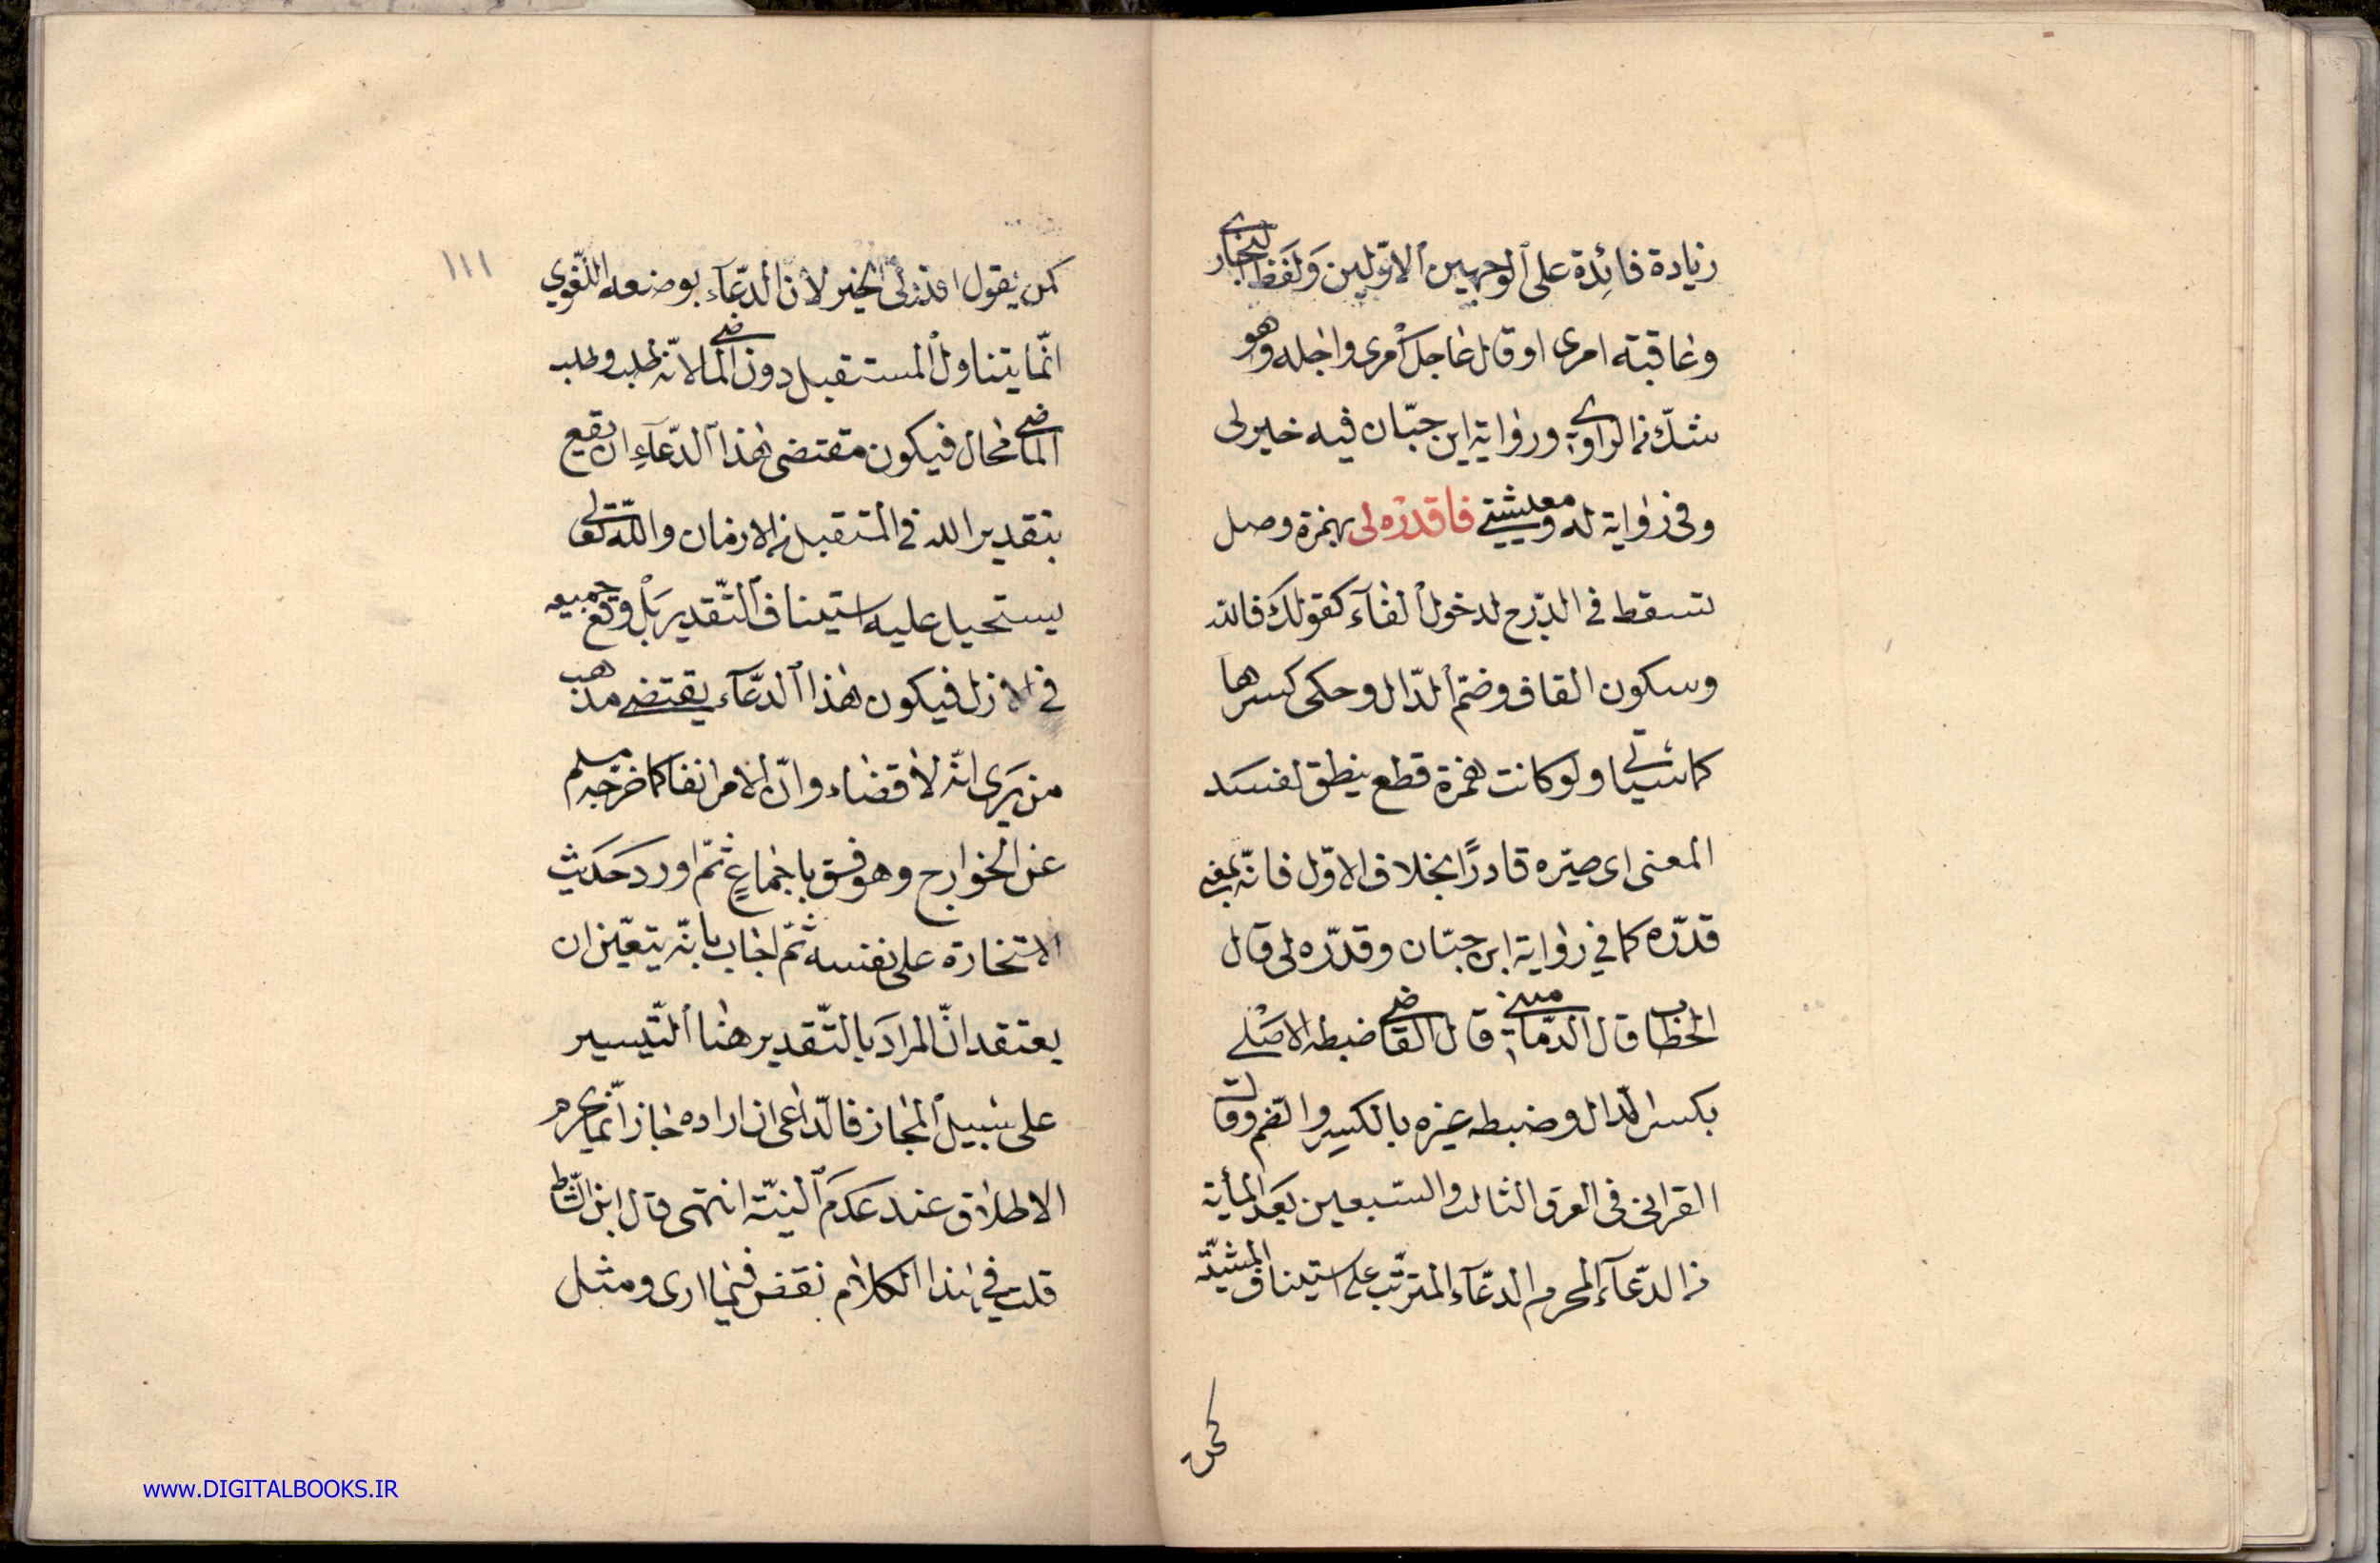 زيادة فائدة على الوجهين الاوّلين ولفظ البخاري
وعاقبة امرى او قال عاجل أمرى واجله وهو
شكّ من الراوي ورواية ابن حبّان فيه خير لى
وفى رواية له ومعيشتي فاقدره لى بهمزة وصل
تسقط فى الدّرج لدخول الفآء كقولك فالله
وسكون القاف وضمّ الدّال وحكى كسرها
كما سيأتى ولو كانت همزة قطع ينطق لفسد
المعنى اى صيّره قادرًا بخلاف الاوّل فانّه بمعنى
قدّره كما في رواية ابن حبّان وقدّره لى قال
الخطاب قال الدّمامينى قال القاضي ضبطه الاصلي
بكسر الدال وضبطه غيره بالكسر والضم وقال
القرافى فى الفرق الثالث والسّبعين بعد المأية
من الدّعآء المحرم الدعّآء المترتّب على استيناف المشيّة
كمن
١١١
كمن يقول اقدر لى الخير لأنّ الدّعآء بوضعه اللّغوي
انّما يتناول المستقبل دون الماضي لانّه طلب وطلب
الماضي محال فيكون مقتضى هذا الدّعآء ان يقع
بتقدير الله في المستقبل من الازمان والله تعالى
يستحيل عليه استيناف التّقدير بل وقع جميعه
في الازل فيكون هذا الدّعآء يقتضي مذهب
من يرى انّه لا قضاء وانّ الامر انفا كما خرّجه مسلم
عن الخوارج وهو فسق باجماع ثمّ اورد حديث
الاستخارة على نفسه ثمّ اجاب بانّه يتعيّن ان
يعتقد انّ المراد بالتّقدير هنا التّيسير
على سبيل المجاز فالدّاعى ان اراده جاز انّما يحرم
الاطلاق عند عدم النيّة انتهى قال ابن الشّاط
قلت في هذا الكلام نقض فيما ارى ومثل
www.DIGITALBOOKS.IR